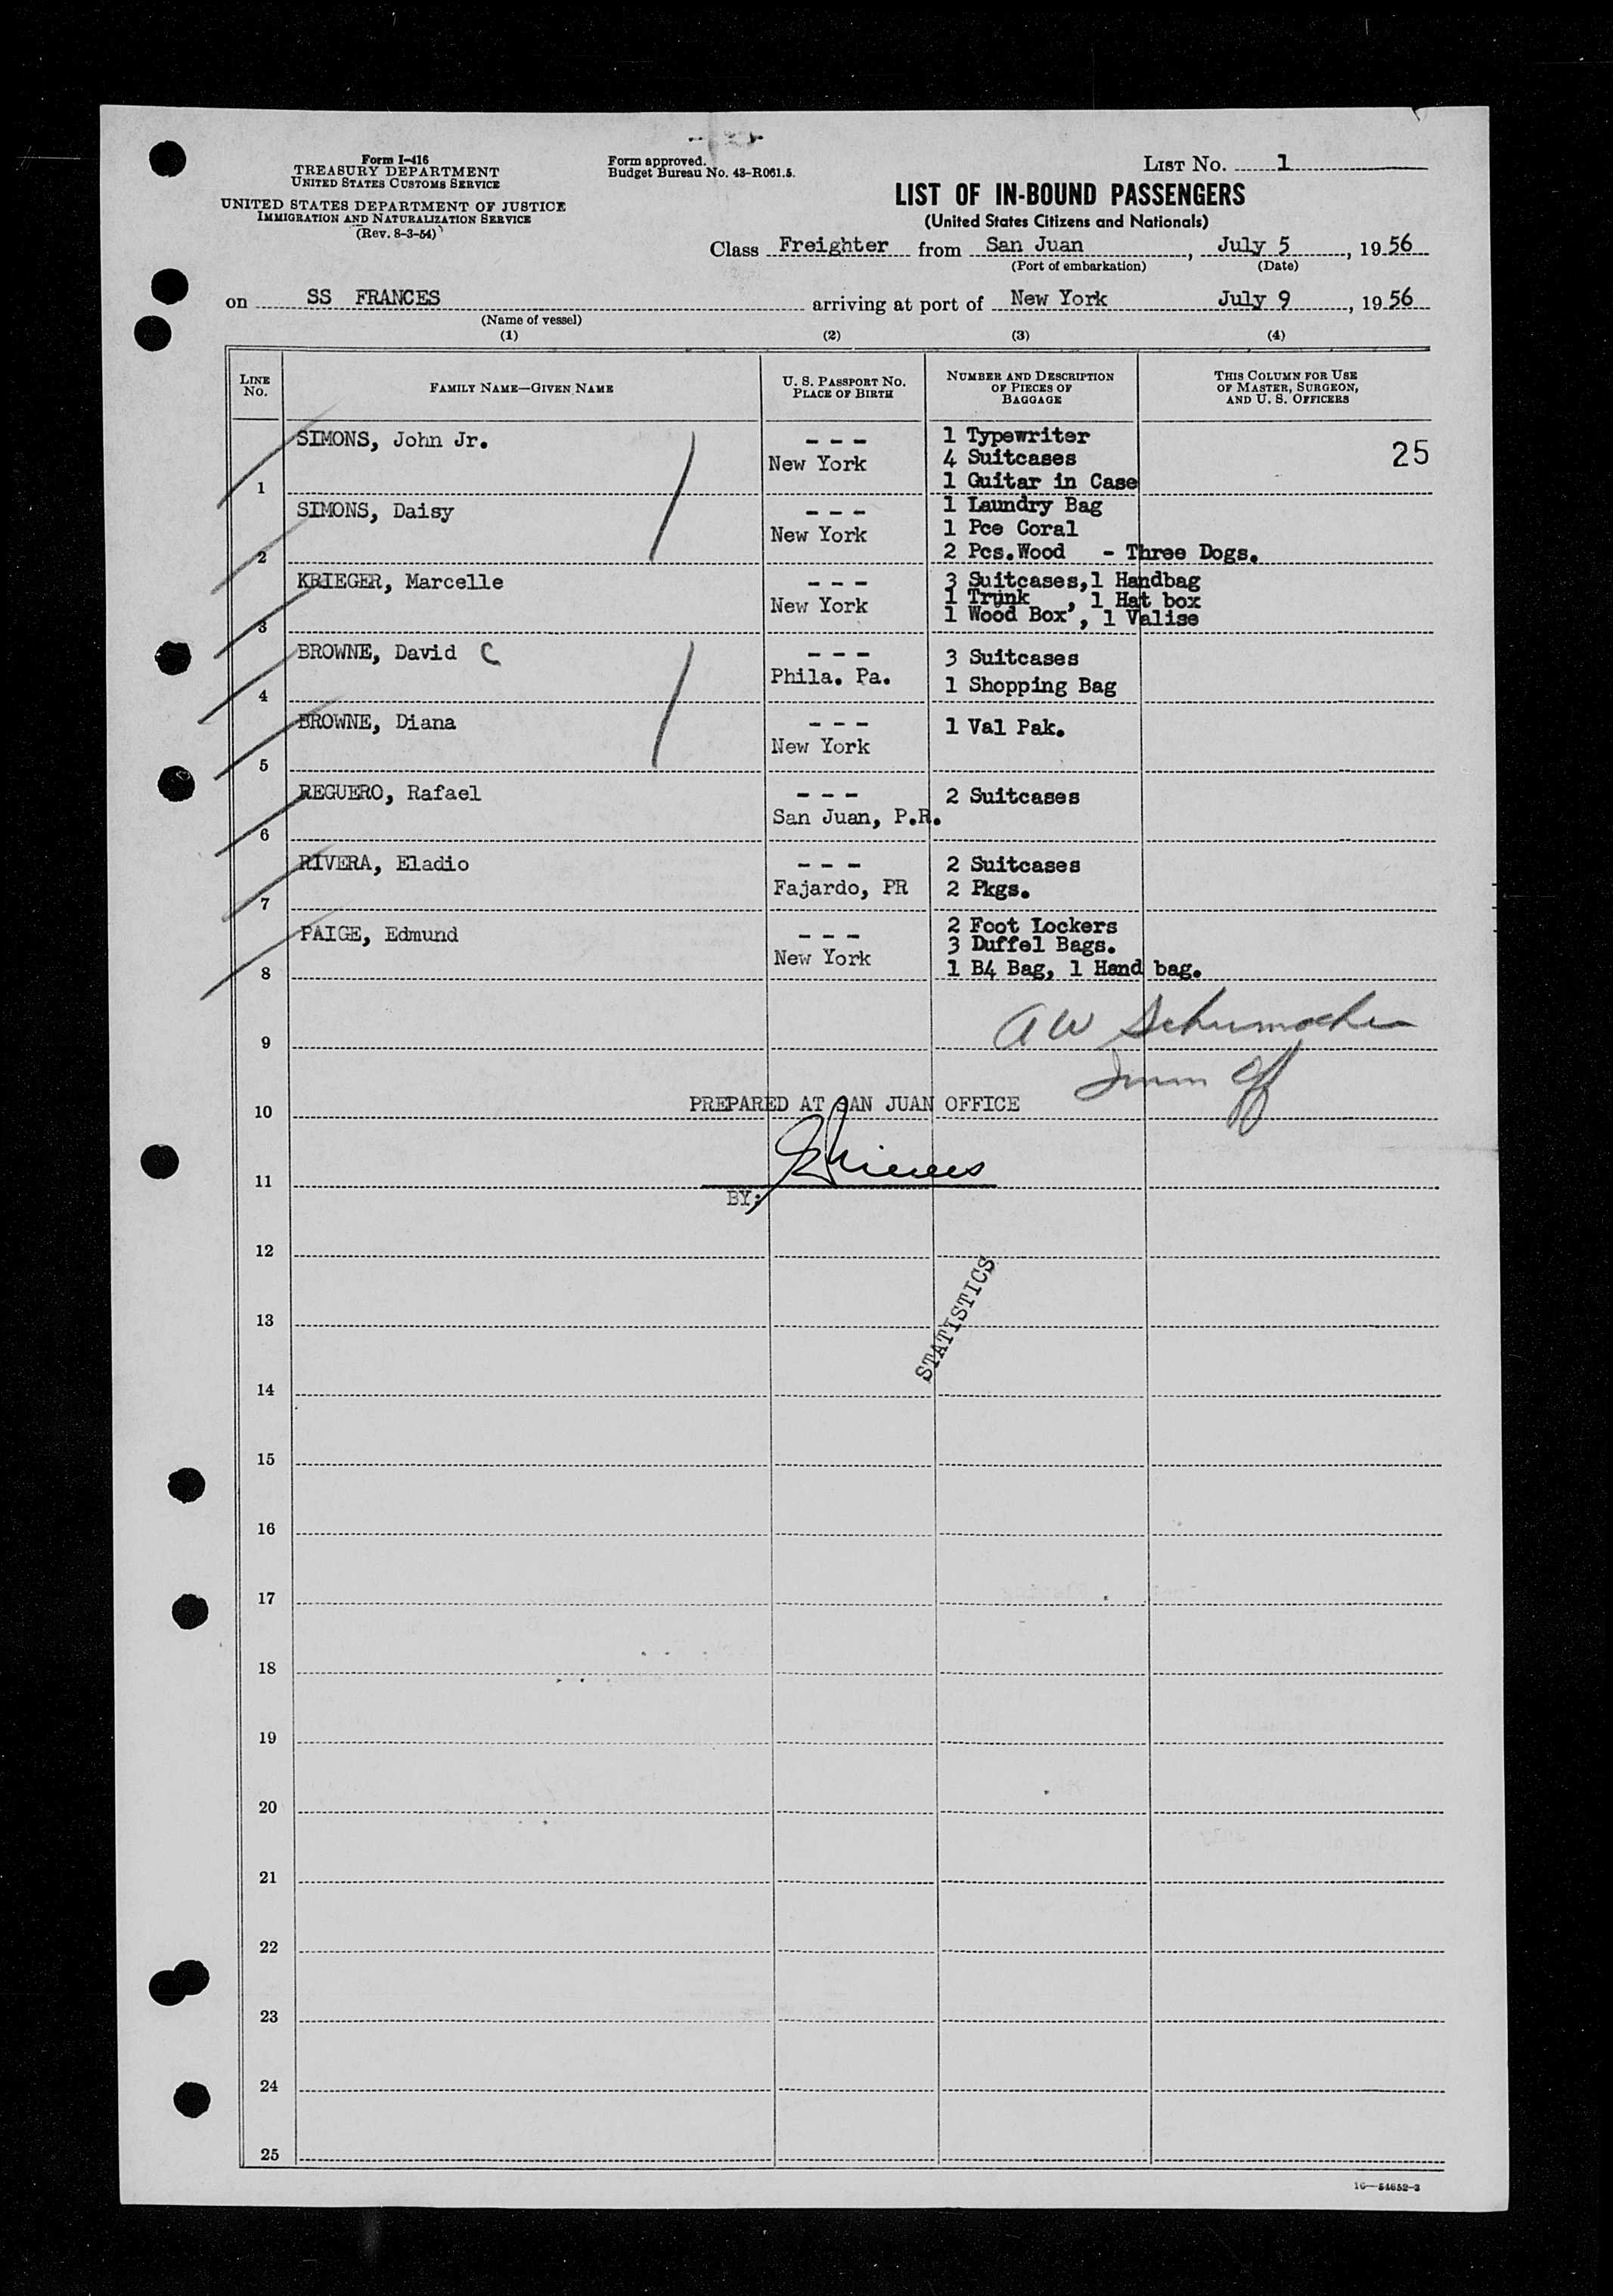 Form I-416
TREASURY DEPARTMENT
UNITED STATES CUSTOMS SERVICE
UNITED STATES DEPARTMENT OF JUSTICE
IMMIGRATION AND NATURALIZATION SERVICE
(Rev. 8-3-54)
Form approved.
Budget Bureau No. 43-R061.5.
LIST No. 1
LIST OF IN-BOUND PASSENGERS
(United States Citizens and Nationals)
Class Freighter from San Juan, July 5, 1956
(Port of embarkation) (Date)
on SS FRANCES arriving at port of New York July 9, 1956
(Name of vessel)
(1) (2) (3) (4)
LINE No.
FAMILY NAME—GIVEN NAME
U. S. PASSPORT No.
PLACE OF BIRTH
NUMBER AND DESCRIPTION
OF PIECES OF
BAGGAGE
THIS COLUMN FOR USE
OF MASTER, SURGEON,
AND U. S. OFFICERS
1 SIMONS, John Jr. - - - 1 Typewriter
New York 4 Suitcases 25
1 Guitar in Case
2 SIMONS, Daisy - - - 1 Laundry Bag
New York 1 Pce Coral
2 Pcs.Wood - Three Dogs.
3 KRIEGER, Marcelle - - - 3 Suitcases,1 Handbag
New York 1 Trunk , 1 Hat box
1 Wood Box , 1 Valise
4 BROWNE, David C - - - 3 Suitcases
Phila. Pa. 1 Shopping Bag
5 BROWNE, Diana - - - 1 Val Pak.
New York
6 REGUERO, Rafael - - - 2 Suitcases
San Juan, P.R.
7 RIVERA, Eladio - - - 2 Suitcases
Fajardo, PR 2 Pkgs.
8 PAIGE, Edmund - - - 2 Foot Lockers
3 Duffel Bags.
New York 1 B4 Bag, 1 Hand bag.
9 A W Schumacher
Imm Off
10 PREPARED AT SAN JUAN OFFICE
11
BY:
12
STATISTICS
13
14
15
16
17
18
19
20
21
22
23
24
25
16—54652-3